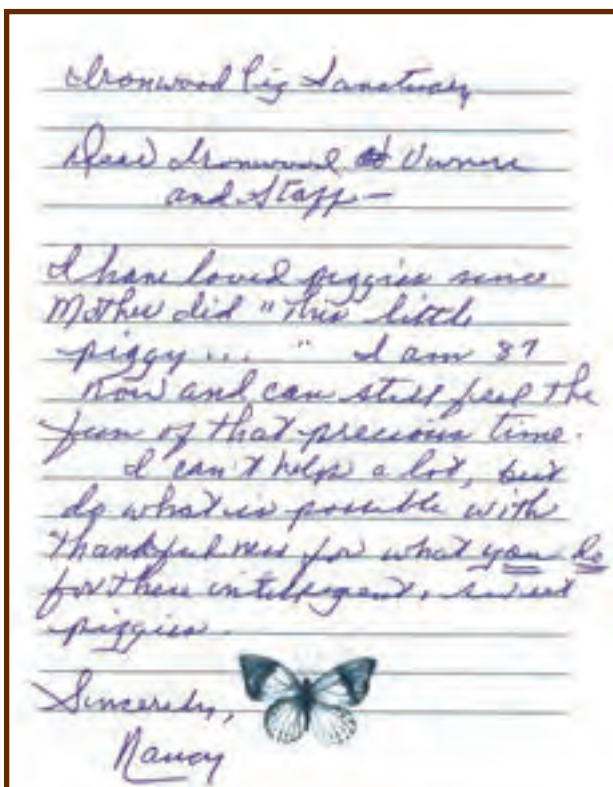 Ironwood Pig Sanctuary
Dear Ironwood Owners
and Staff—
I have loved piggies since
Mother did "This little
piggy... " I am 87
now and can still feel the
fun of that precious time.
I can't help a lot, but
do what is possible with
thankfulness for what you do
for these intelligent, sweet
piggies.
Sincerely,
Nancy